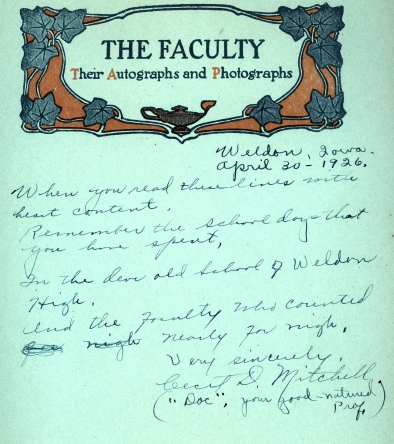 THE FACULTY
Their Autographs and Photographs
Weldon, Iowa.
April 30 - 1926.
When you read these lines with
heart content.
Remember the school days that
you have spent,
In the dear old School of Weldon
High.
And the Faculty who counted
nigh nearly for nigh.
Very sincerely,
Cecil D. Mitchell
("Doc", your good-natured
Prof.)